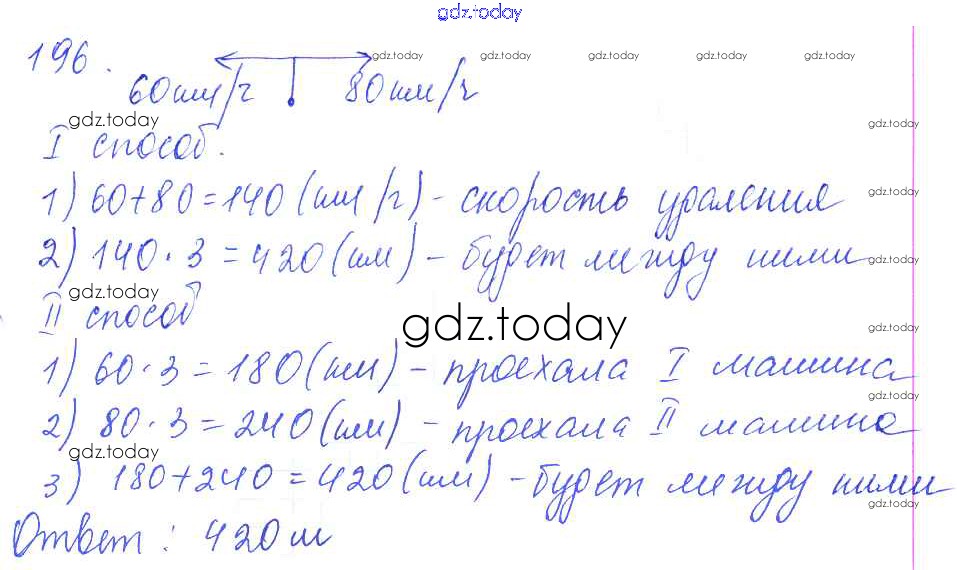 gdz.today
196.
gdz.today gdz.today gdz.today gdz.today gdz.today
60км/ч 80км/ч
gdz.today gdz.today
I способ.
1) 60+80=140(км/ч) - скорость удаления
gdz.today
2) 140·3=420(км) - будет между ними
gdz.today
gdz.today
II способ
gdz.today
gdz.today
1) 60·3=180(км) - проехала I машина
gdz.today
2) 80·3=240(км) - проехала II машина
gdz.today
gdz.today
3) 180+240=420(км) - будет между ними
gdz.today
Ответ: 420м